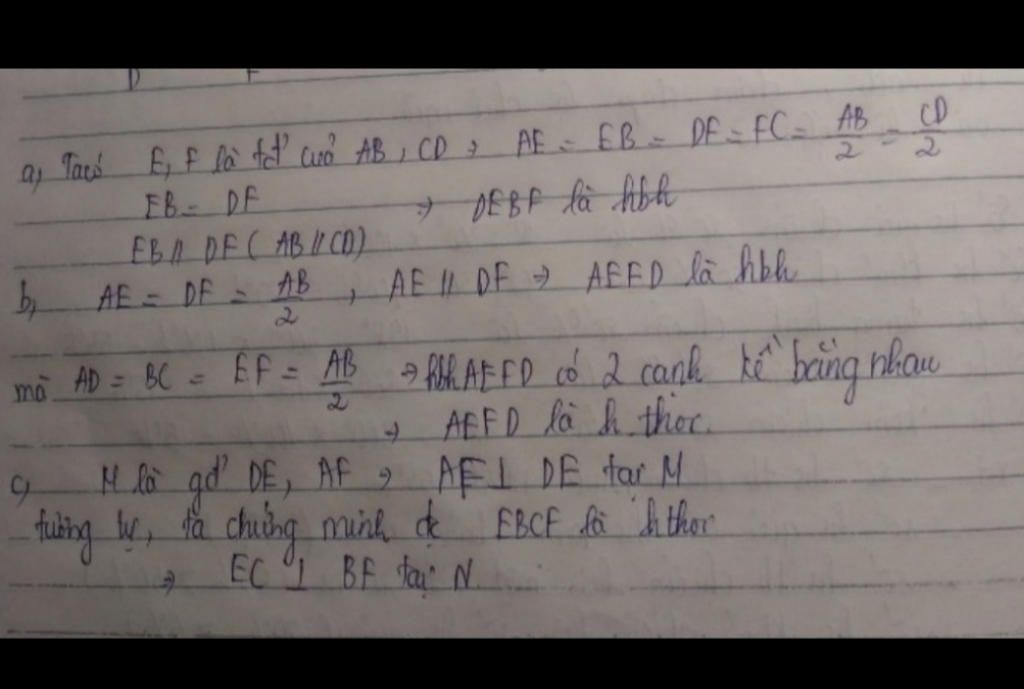 D F
a, Ta có E, F là tđ của AB, CD → AE = EB = DF = FC = AB/2 = CD/2
EB = DF → DEBF là hbh
EB // DF (AB // CD)
b, AE = DF = AB/2, AE // DF → AEFD là hbh
mà AD = BC = EF = AB/2 → hbh AEFD có 2 cạnh kề bằng nhau
→ AEFD là h.thoi.
c, M là gđ DE, AF → AF ⊥ DE tại M
tương tự, ta chứng minh đc EBCF là hthoi
→ EC ⊥ BF tại N